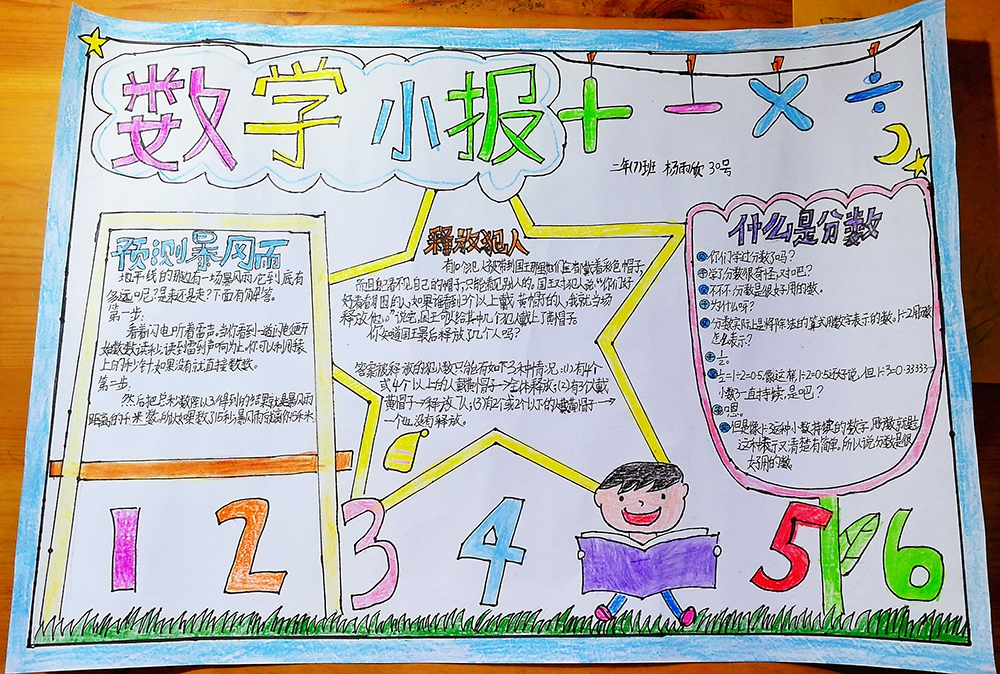 数学小报
+ - × ÷
二年(7)班 杨雨欣 30号
预测暴风雨
地平线的那边有一场暴风雨,它到底有
多远呢?是来还是走?下面有解答。
第一步:
看看闪电听着雷声。当你看到一道闪电便开
始数数读秒,读到雷到声响为止。你可以利用表
上的秒针如果没有就直接数数。
第二步:
然后把总秒数除以3,得到的结果就是暴风雨
距离的千米数。所以如果数了15秒,暴风雨应离你5千米。
释放犯人
有10个犯人被带到国王那里他们每个人都戴着彩色帽子,
而且自己看不见自己的帽子,只能看见别人的。国王对犯人说:“你们好
好看看周围的人,如果谁看到3个以上戴黄帽子的人,我就当场
释放他。”说完,国王可以给其中几个犯人戴上了黄帽子。
你知道国王最后释放了几个人吗?
答案:被释放的犯人数只能有如下3种情况:(1)有4个
或4个以上的人戴黄帽子→全体释放;(2)有3个人戴
黄帽子→释放7人;(3)有2个或2个以下的人戴黄帽子→
一个也没有释放。
什么是分数
你们学过分数了吗?
学了,分数很奇怪,对吧?
不不,分数是很好用的数。
为什么呢?
分数实际上是将除法的算式用数字表示的数。1÷2用分数
怎么表示?
½。
½=1÷2=0.5。像这样,1÷2=0.5还好说,但1÷3=0.33333……
小数3一直持续,是吧?
嗯。
但是像1÷3这种小数持续的数字,用分数就是⅓,
这种表示又清楚有简单。所以说分数是很
好用的数。
1 2 3 4 5 6